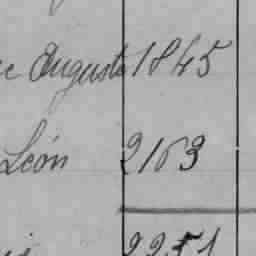 Augusto 1845
León 2163
2251